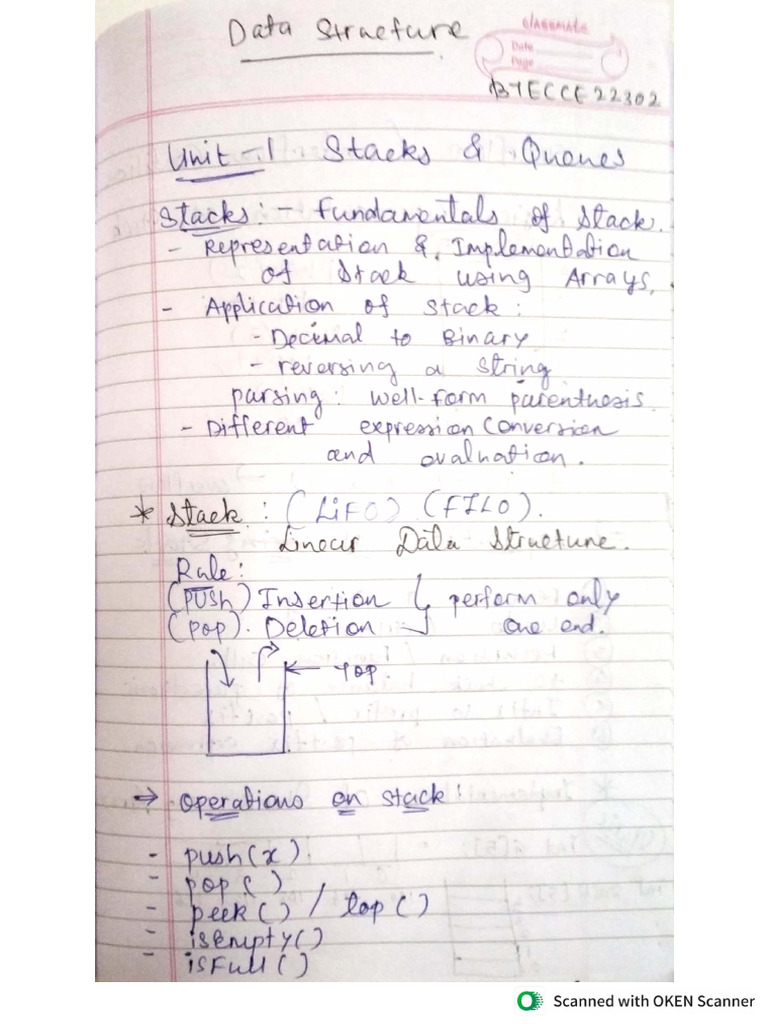 Data Structure
classmate
Date
Page
BTECCE22302
Unit-1 Stacks & Queues
Stacks:- Fundamentals of Stack.
- Representation & Implementation
of Stack using Arrays,
- Application of Stack:
- Decimal to Binary
- reversing a String
parsing: well-form parenthesis.
- Different expression Conversion
and evaluation.
* Stack: (LiFO) (FILO).
Linear Data Structure.
Rule:
(PUSh) Insertion } perform only
(POP). Deletion one end.
← Top.
→ operations on stack:
- push(x)
- pop()
- peek() / top()
- isEmpty()
- isFull()
Scanned with OKEN Scanner